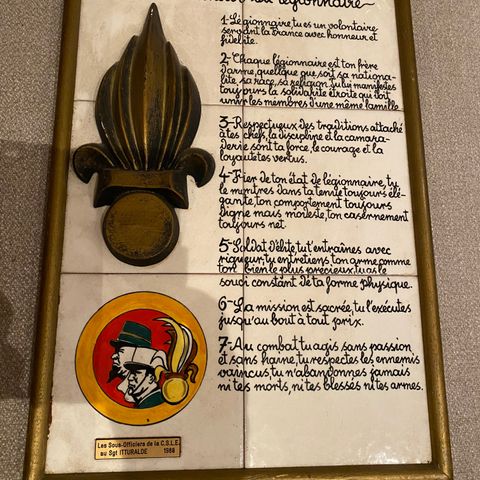 légionnaire~
1-Légionnaire, tu es un volontaire
servant la France avec honneur et
fidélité.
2-Chaque légionnaire est ton frère
d'arme, quelque que soit sa nationa-
lité, sa race, sa religion. Tu lui manifestes
toujours la solidarité étroite qui doit
unir les membres d'une même famille
3-Respectueux des traditions attaché
à tes chefs, la discipline et la camara-
derie sont ta force, le courage et la
loyauté tes vertus.
4-Fier de ton état de légionnaire, tu
le montres dans ta tenue toujours élé-
gante, ton comportement toujours
digne mais modeste, ton casernement
toujours net.
5-Soldat d'élite, tu t'entraînes avec
rigueur, tu entretiens ton arme comme
ton bien le plus précieux, tu as le
souci constant de ta forme physique.
6-La mission est sacrée, tu l'exécutes
jusqu'au bout à tout prix.
7-Au combat tu agis sans passion
et sans haine, tu respectes les ennemis
vaincus, tu n'abandonnes jamais
ni tes morts, ni tes blessés ni tes armes.
Les Sous-Officiers de la C.S.L.E.
au Sgt ITTURALDE 1988